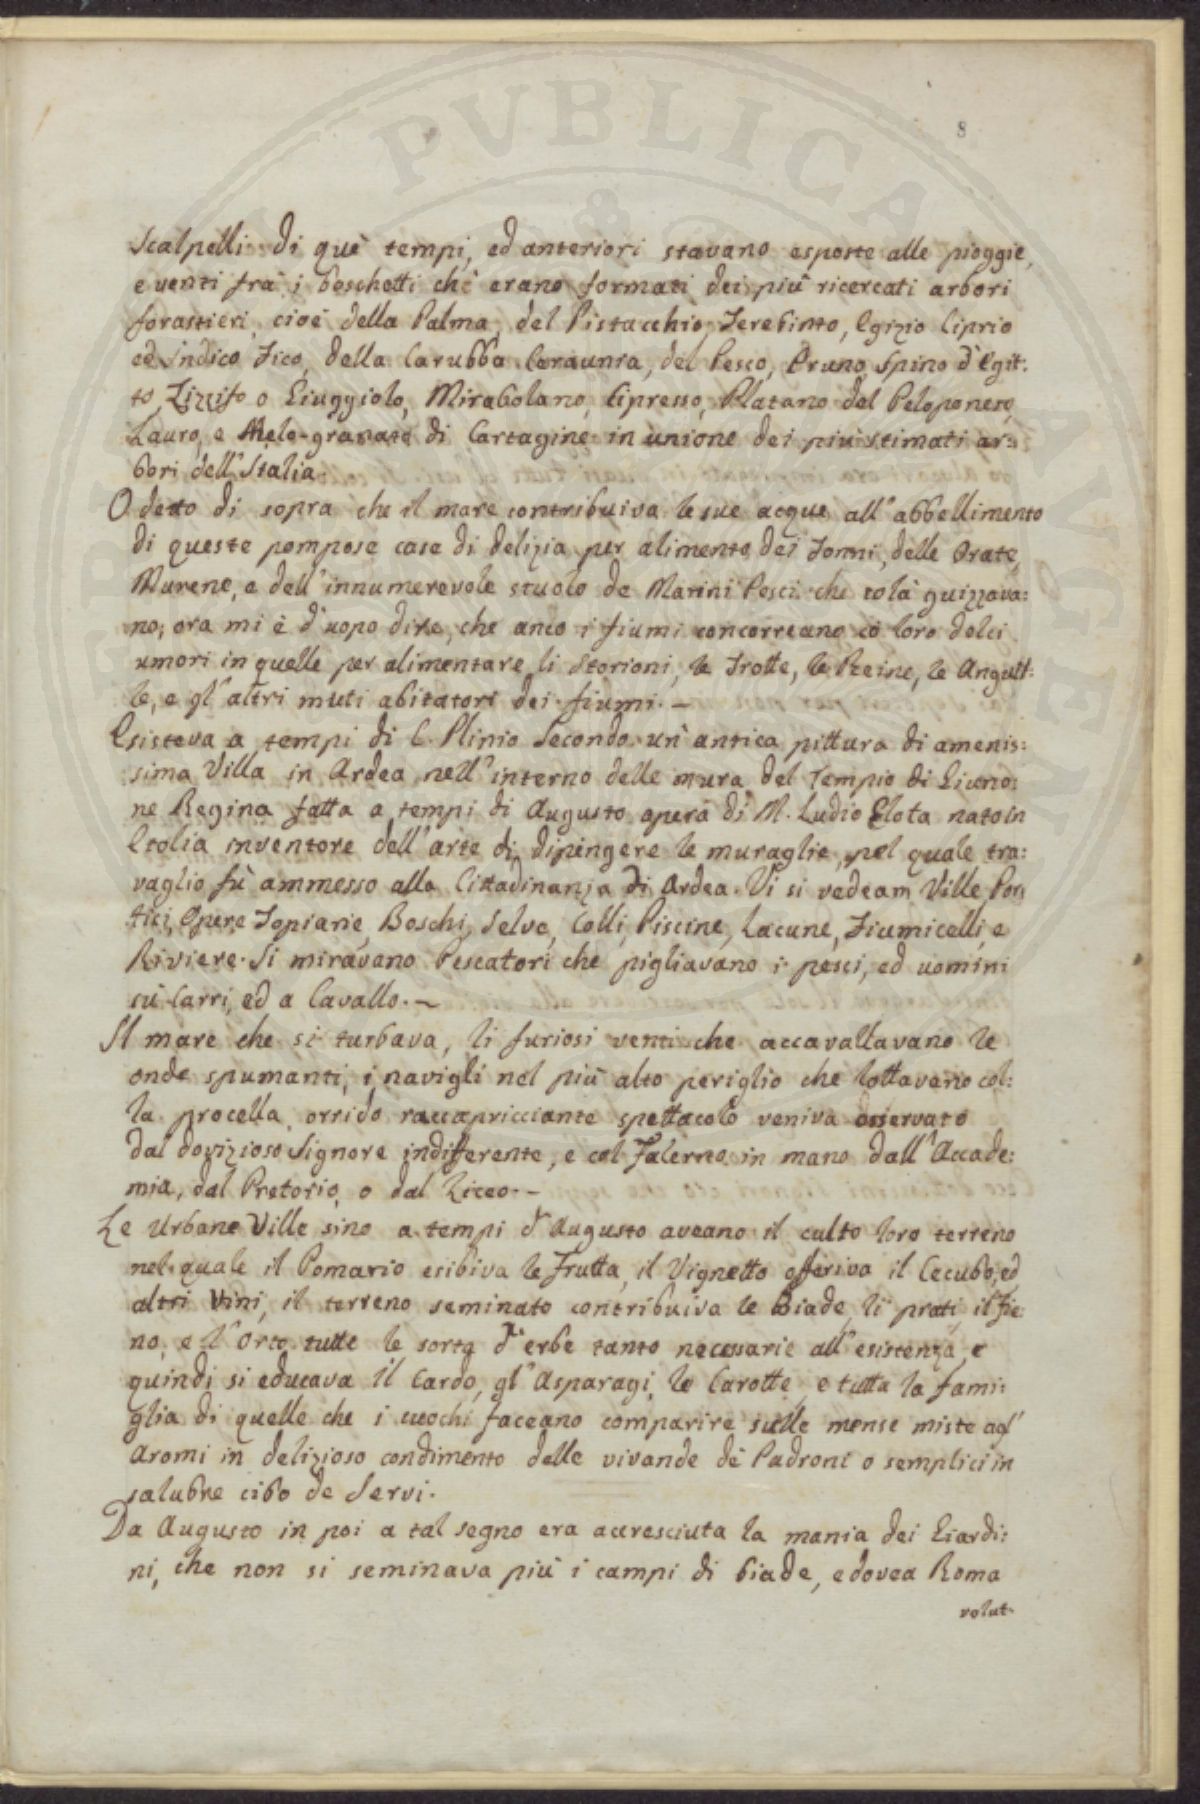 8
Scalpelli di què tempi, ed anteriori stavano esposte alle pioggie,
e venti frà i boschetti chè erano formati dei più ricercati arbori
forastieri, cioè della Palma, del Pistacchio, Terebinto, Egizio Ciprio
ed Indico Fico, della Carubba Ceraunia, del Pesco, Pruno, Spino d'Egit:
to, Zizzifo o Giuggiolo, Mirabolano, Cipresso, Platano del Peloponeso,
Lauro, e Melo-granato di Cartagine in unione dei più stimati ar:
bori dell'Italia.
O detto di sopra che il mare contribuiva le sue acque all'abbellimento
di queste pompose case di delizia per alimento dei Tonni, delle Orate,
Murene, e dell'innumerevole stuolo de Marini Pesci che colà guizzava:
no; ora mi è d'uopo dire, che anco i fiumi concorreano cò loro dolci
umori in quelle per alimentare li Storioni, le Trotte, le Reine, le Anguil:
le, e gl'altri muti abitatori dei fiumi. –
Esisteva a tempi di C. Plinio Secondo un'antica pittura di amenis:
sima Villa in Ardea nell'interno delle mura del Tempio di Giuno:
ne Regina fatta a tempi di Augusto opera di M. Ludio Elota nato in
Etolia inventore dell'arte di dipingere le muraglie, pel quale tra:
vaglio fù ammesso alla Cittadinanza di Ardea. Vi si vedeam Ville, Por
tici, Opere Topiarie, Boschi, Selve, Colli, Piscine, Lacune, Fiumicelli, e
Riviere. Si miravano Pescatori che pigliavano i pesci, ed uomini
sù Carri, ed a Cavallo. –
Il mare che si turbava, li furiosi venti che accavallavano le
onde spumanti, i navigli nel più alto periglio che lottavano col:
la procella, orrido raccapricciante spettacolo veniva osservato
dal dovizioso Signore indifferente, e col Falerno in mano dall'Accade:
mia, dal Pretorio, o dal Liceo. –
Le Urbane Ville sino a tempi d'Augusto aveano il culto loro terreno
nel quale il Pomario esibiva le Frutta, il Vignetto offeriva il Cecubo, ed
altri Vini, il terreno seminato contribuiva le Biade, li prati, il fie
no, e l'Orto tutte le sorta d'erbe tanto necessarie all'esistenza, e
quindi si educava il Cardo, gl'Asparagi, le Carotte, e tutta la fami:
glia di quelle che i cuochi faceano comparire sulle mense miste agl'
Aromi in delizioso condimento delle vivande dè Padroni o semplici in
salubre cibo de Servi.
Da Augusto in poi a tal segno era accresciuta la mania dei Giardi:
ni, che non si seminava più i campi di biade, e dovea Roma
volut-
PVBLICA